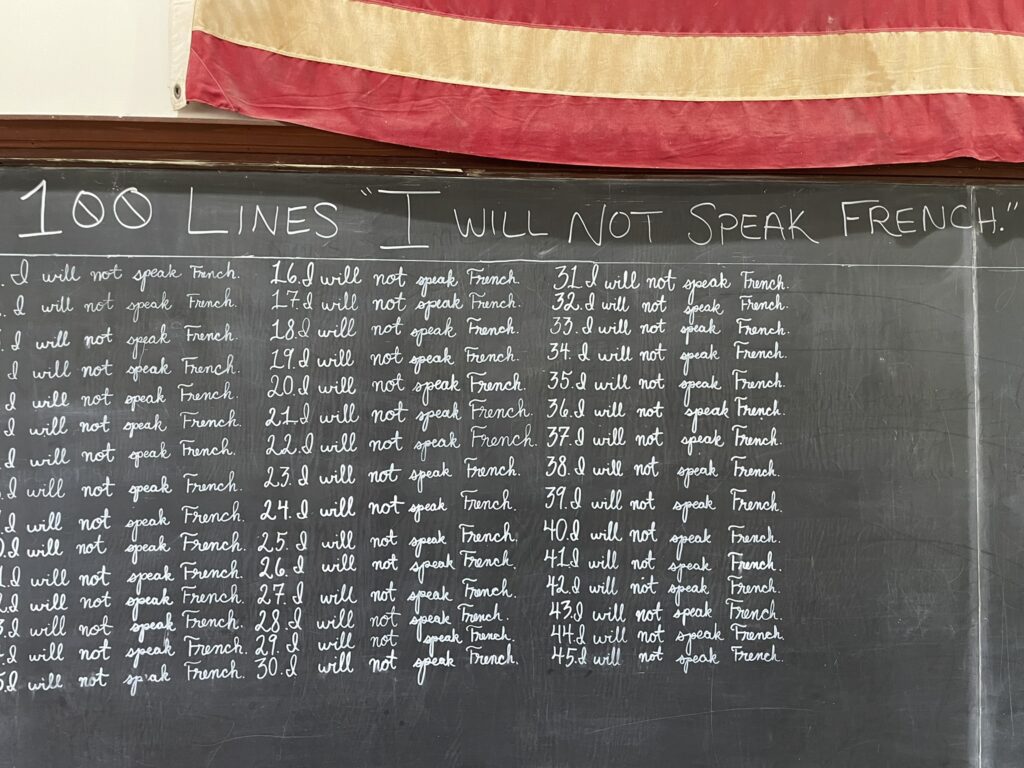 100 LINES "I WILL NOT SPEAK FRENCH."
I will not speak French.
I will not speak French.
I will not speak French.
I will not speak French.
I will not speak French.
I will not speak French.
I will not speak French.
I will not speak French.
I will not speak French.
I will not speak French.
1.I will not speak French.
2.I will not speak French.
3.I will not speak French.
I will not speak French.
5.I will not speak French.
16.I will not speak French.
17.I will not speak French.
18.I will not speak French.
19.I will not speak French.
20.I will not speak French.
21.I will not speak French.
22.I will not speak French.
23.I will not speak French.
24.I will not speak French.
25.I will not speak French.
26.I will not speak French.
27.I will not speak French.
28.I will not speak French.
29.I will not speak French.
30.I will not speak French.
31.I will not speak French.
32.I will not speak French.
33.I will not speak French.
34.I will not speak French.
35.I will not speak French.
36.I will not speak French.
37.I will not speak French.
38.I will not speak French.
39.I will not speak French.
40.I will not speak French.
41.I will not speak French.
42.I will not speak French.
43.I will not speak French.
44.I will not speak French.
45.I will not speak French.